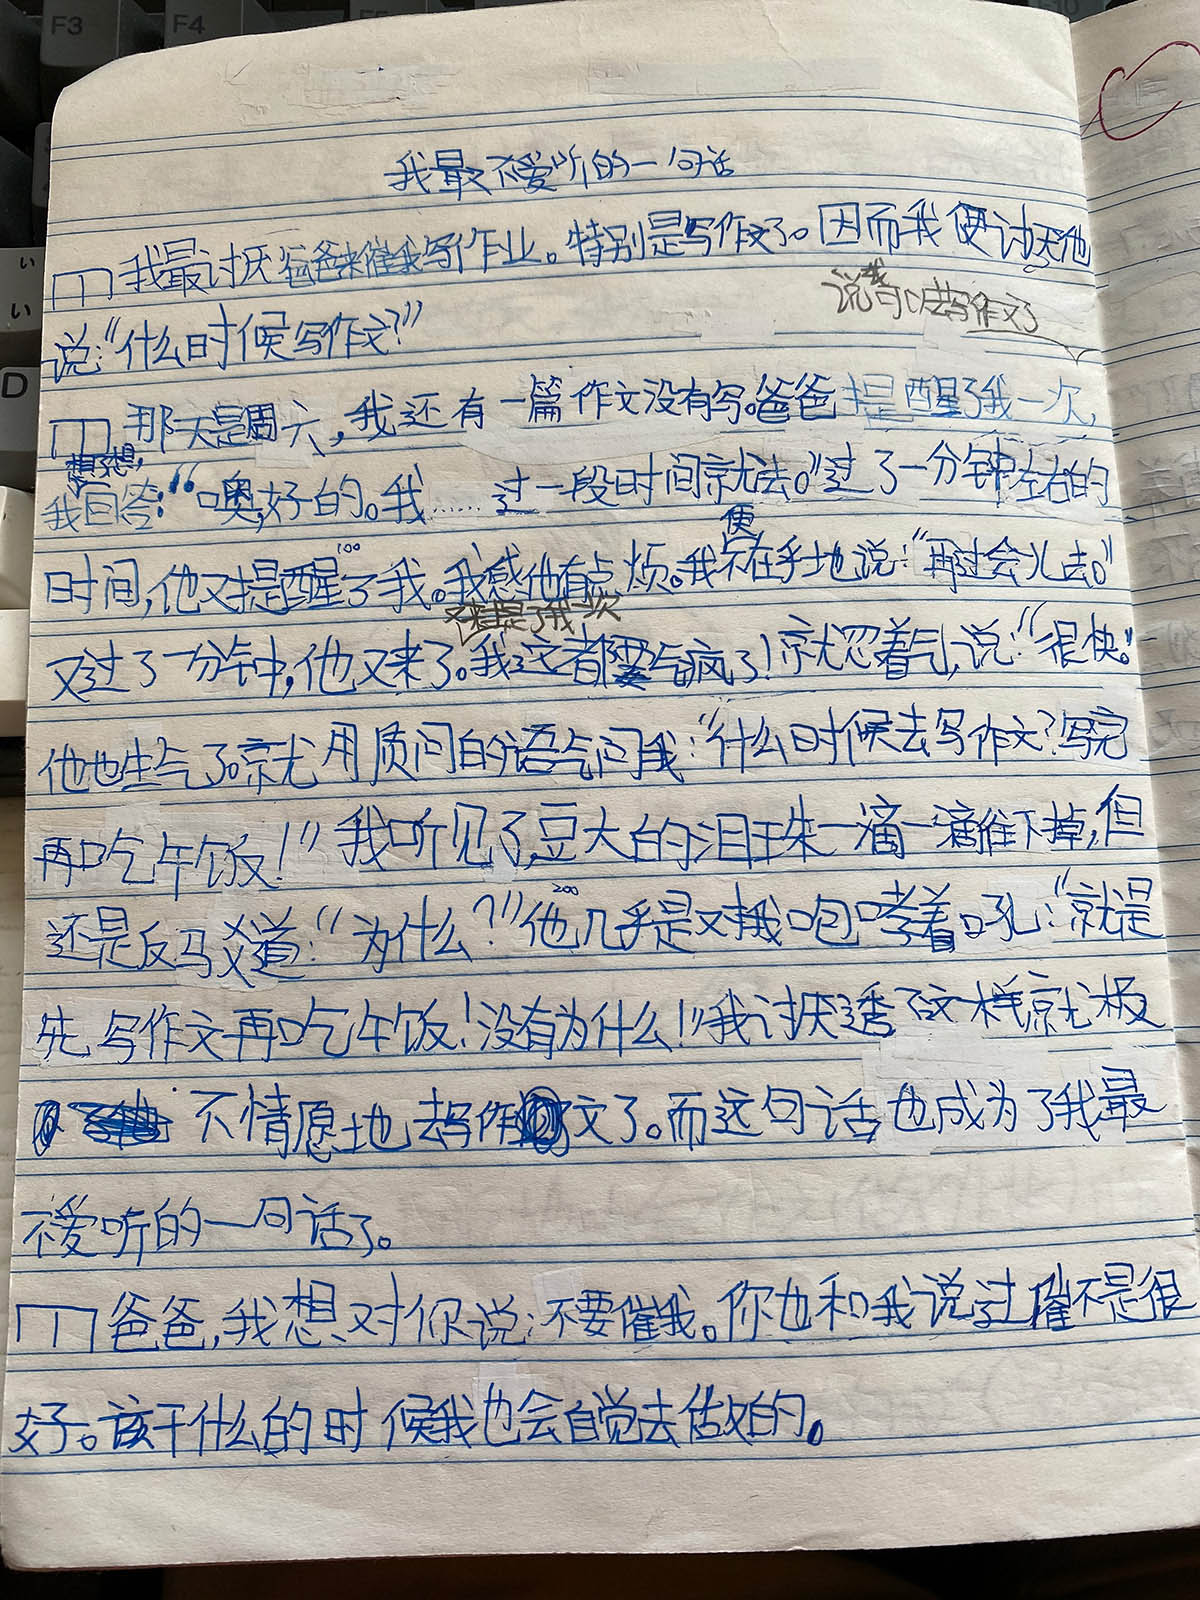 我最不爱听的一句话
我最讨厌爸爸来催我写作业。特别是写作文了。因而我便讨厌他
说可以去写作文了
说:“什么时候写作文?”
那天是周六,我还有一篇作文没有写。爸爸提醒了我一次,
想了想,
我回答:“噢,好的。我……过一段时间就去。”过了一分钟左右的
便
100
时间,他又提醒了我。我感他有点烦。我不在乎地说:“再过会儿去。”
又来提了我一次
又过了一分钟,他又来了。我这都要气疯了!就忍着气,说:“很快。”
他也生气了。就用质问的语气问我:“什么时候去写作文?写完
再吃午饭!”我听见了,豆大的泪珠一滴一滴往下掉,但
200
还是反驳道:“为什么?”他几乎是对我咆哮着吼:“就是
先写作文再吃午饭!没有为什么!”我讨厌透了这样就极
不情愿地去写作文了。而这句话也成为了我最
不爱听的一句话了。
爸爸,我想对你说:不要催我。你也和我说过催不是很
好。该干什么的时候我也会自觉去做的。
F3
F4
D
い
い